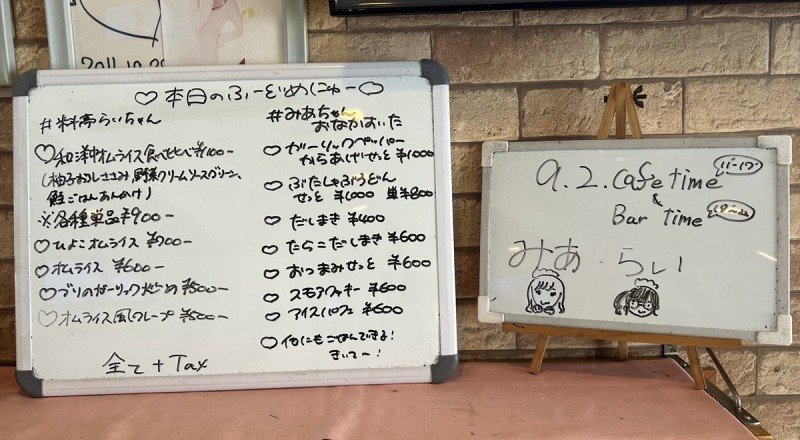 2011.10.29
♡本日のふーどめにゅー♡
#料亭らいちゃん
♡和洋中オムライス食べくらべ
(柚子おろしささみ、野菜クリームソースグリーン、
鮭ごはんあんかけ)
※各種単品¥900-
♡ひよこオムライス ¥700-
♡オムライス ¥600-
♡ブリのガーリック ¥500-
♡オムライス風クレープ ¥500-
全て+Tax
#みあちゃん
おなかすいた
♡ガーリックペッパー
からあげせっと ¥1000
♡ぶたしゃぶうどん
せっと ¥1000 単半800
♡だしまき ¥400
♡たらこだしまき ¥600
♡おつまみせっと ¥600
♡スモアクッキー ¥600
♡アイスパフェ ¥600
♡他にもごはんできるよ!
きいてー!
9.2.Cafe time
&
Bar time
みあ らい